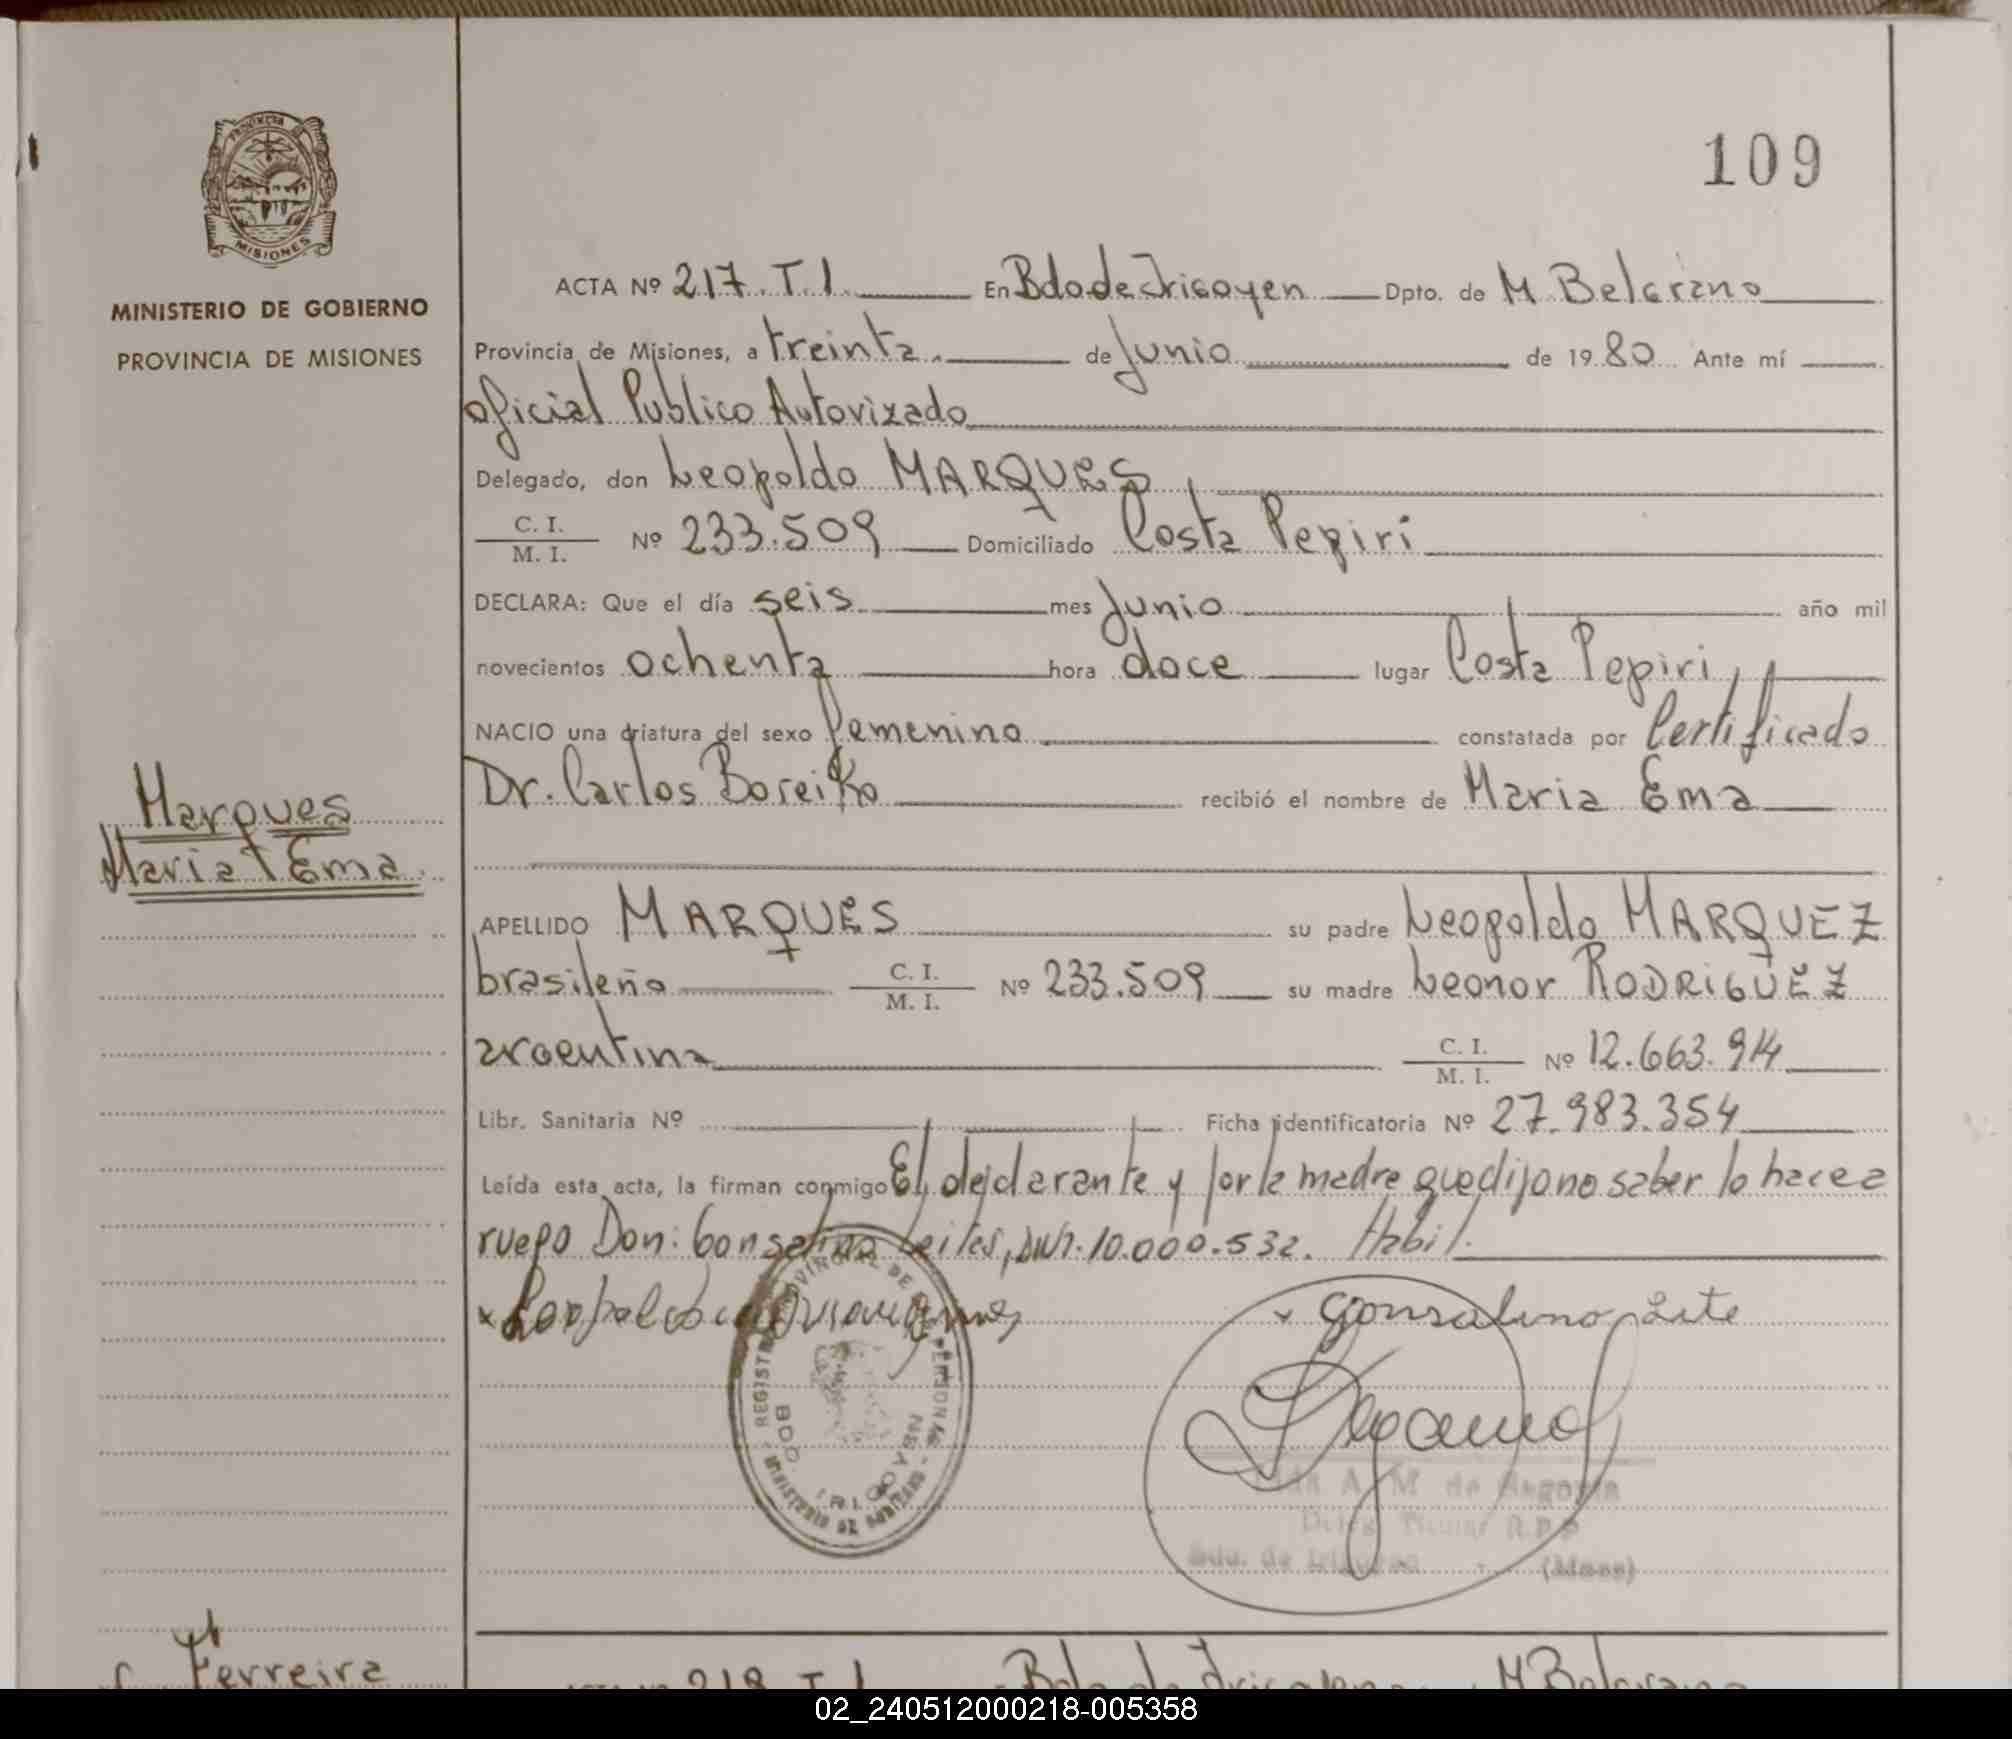 109
PROVINCIA DE
MISIONES
MINISTERIO DE GOBIERNO
PROVINCIA DE MISIONES
ACTA Nº 217. T. I. En Bdo de Irigoyen Dpto. de M Belgrano
Provincia de Misiones, a treinta de Junio de 1980 Ante mí
oficial Publico Autorizado
Delegado, don Leopoldo MARQUES
C. I. / M. I. Nº 233.509 Domiciliado Costa Pepiri
DECLARA: Que el día seis mes Junio año mil
novecientos ochenta hora doce lugar Costa Pepiri
NACIO una criatura del sexo femenino constatada por Certificado
Dr. Carlos Boreiko recibió el nombre de Maria Ema
Marques
Maria Ema
APELLIDO MARQUES su padre Leopoldo MARQUEZ
brasileño C. I. / M. I. Nº 233.509 su madre Leonor RODRIGUEZ
argentina C. I. / M. I. Nº 12.663.914
Libr. Sanitaria Nº Ficha identificatoria Nº 27.983.354
Leída esta acta, la firman conmigo El declarante y por la madre que dijo no saber lo hace a
ruego Don: Gonsalino Leites, 10.000.532. Habil.
x x Gonsalino Leite
REGISTRO PROVINCIAL DE PERSONAS - MINISTERIO DE GOBIERNO
BDO. IRIGOYEN
A. M de
Titular R.P.P
Bdo. de Irigoyen - (Mnes)
Ferreira
218 T I Bdo de Irigoyen M Belgrano
02_240512000218-005358